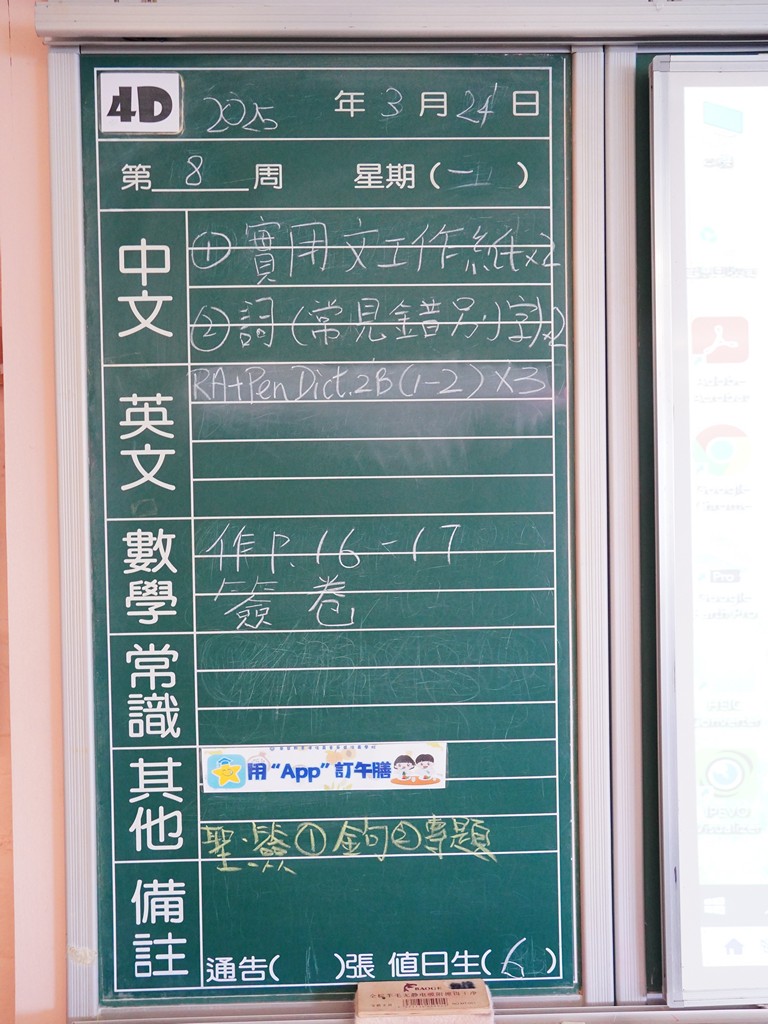 4D 2025 年 3 月 24 日
第 8 周 星期 (一)
中文
① 實用文工作紙x2
② 詞 (常見錯別字)x2
英文
RA+Pen Dict. 2B (1-2) X3
數學
作P. 16-17
簽卷
常識
其他
用 “App” 訂午膳
聖: 簽 ① 金句 ② 專題
備註
通告( )張 值日生(6)
BADGE
Pro